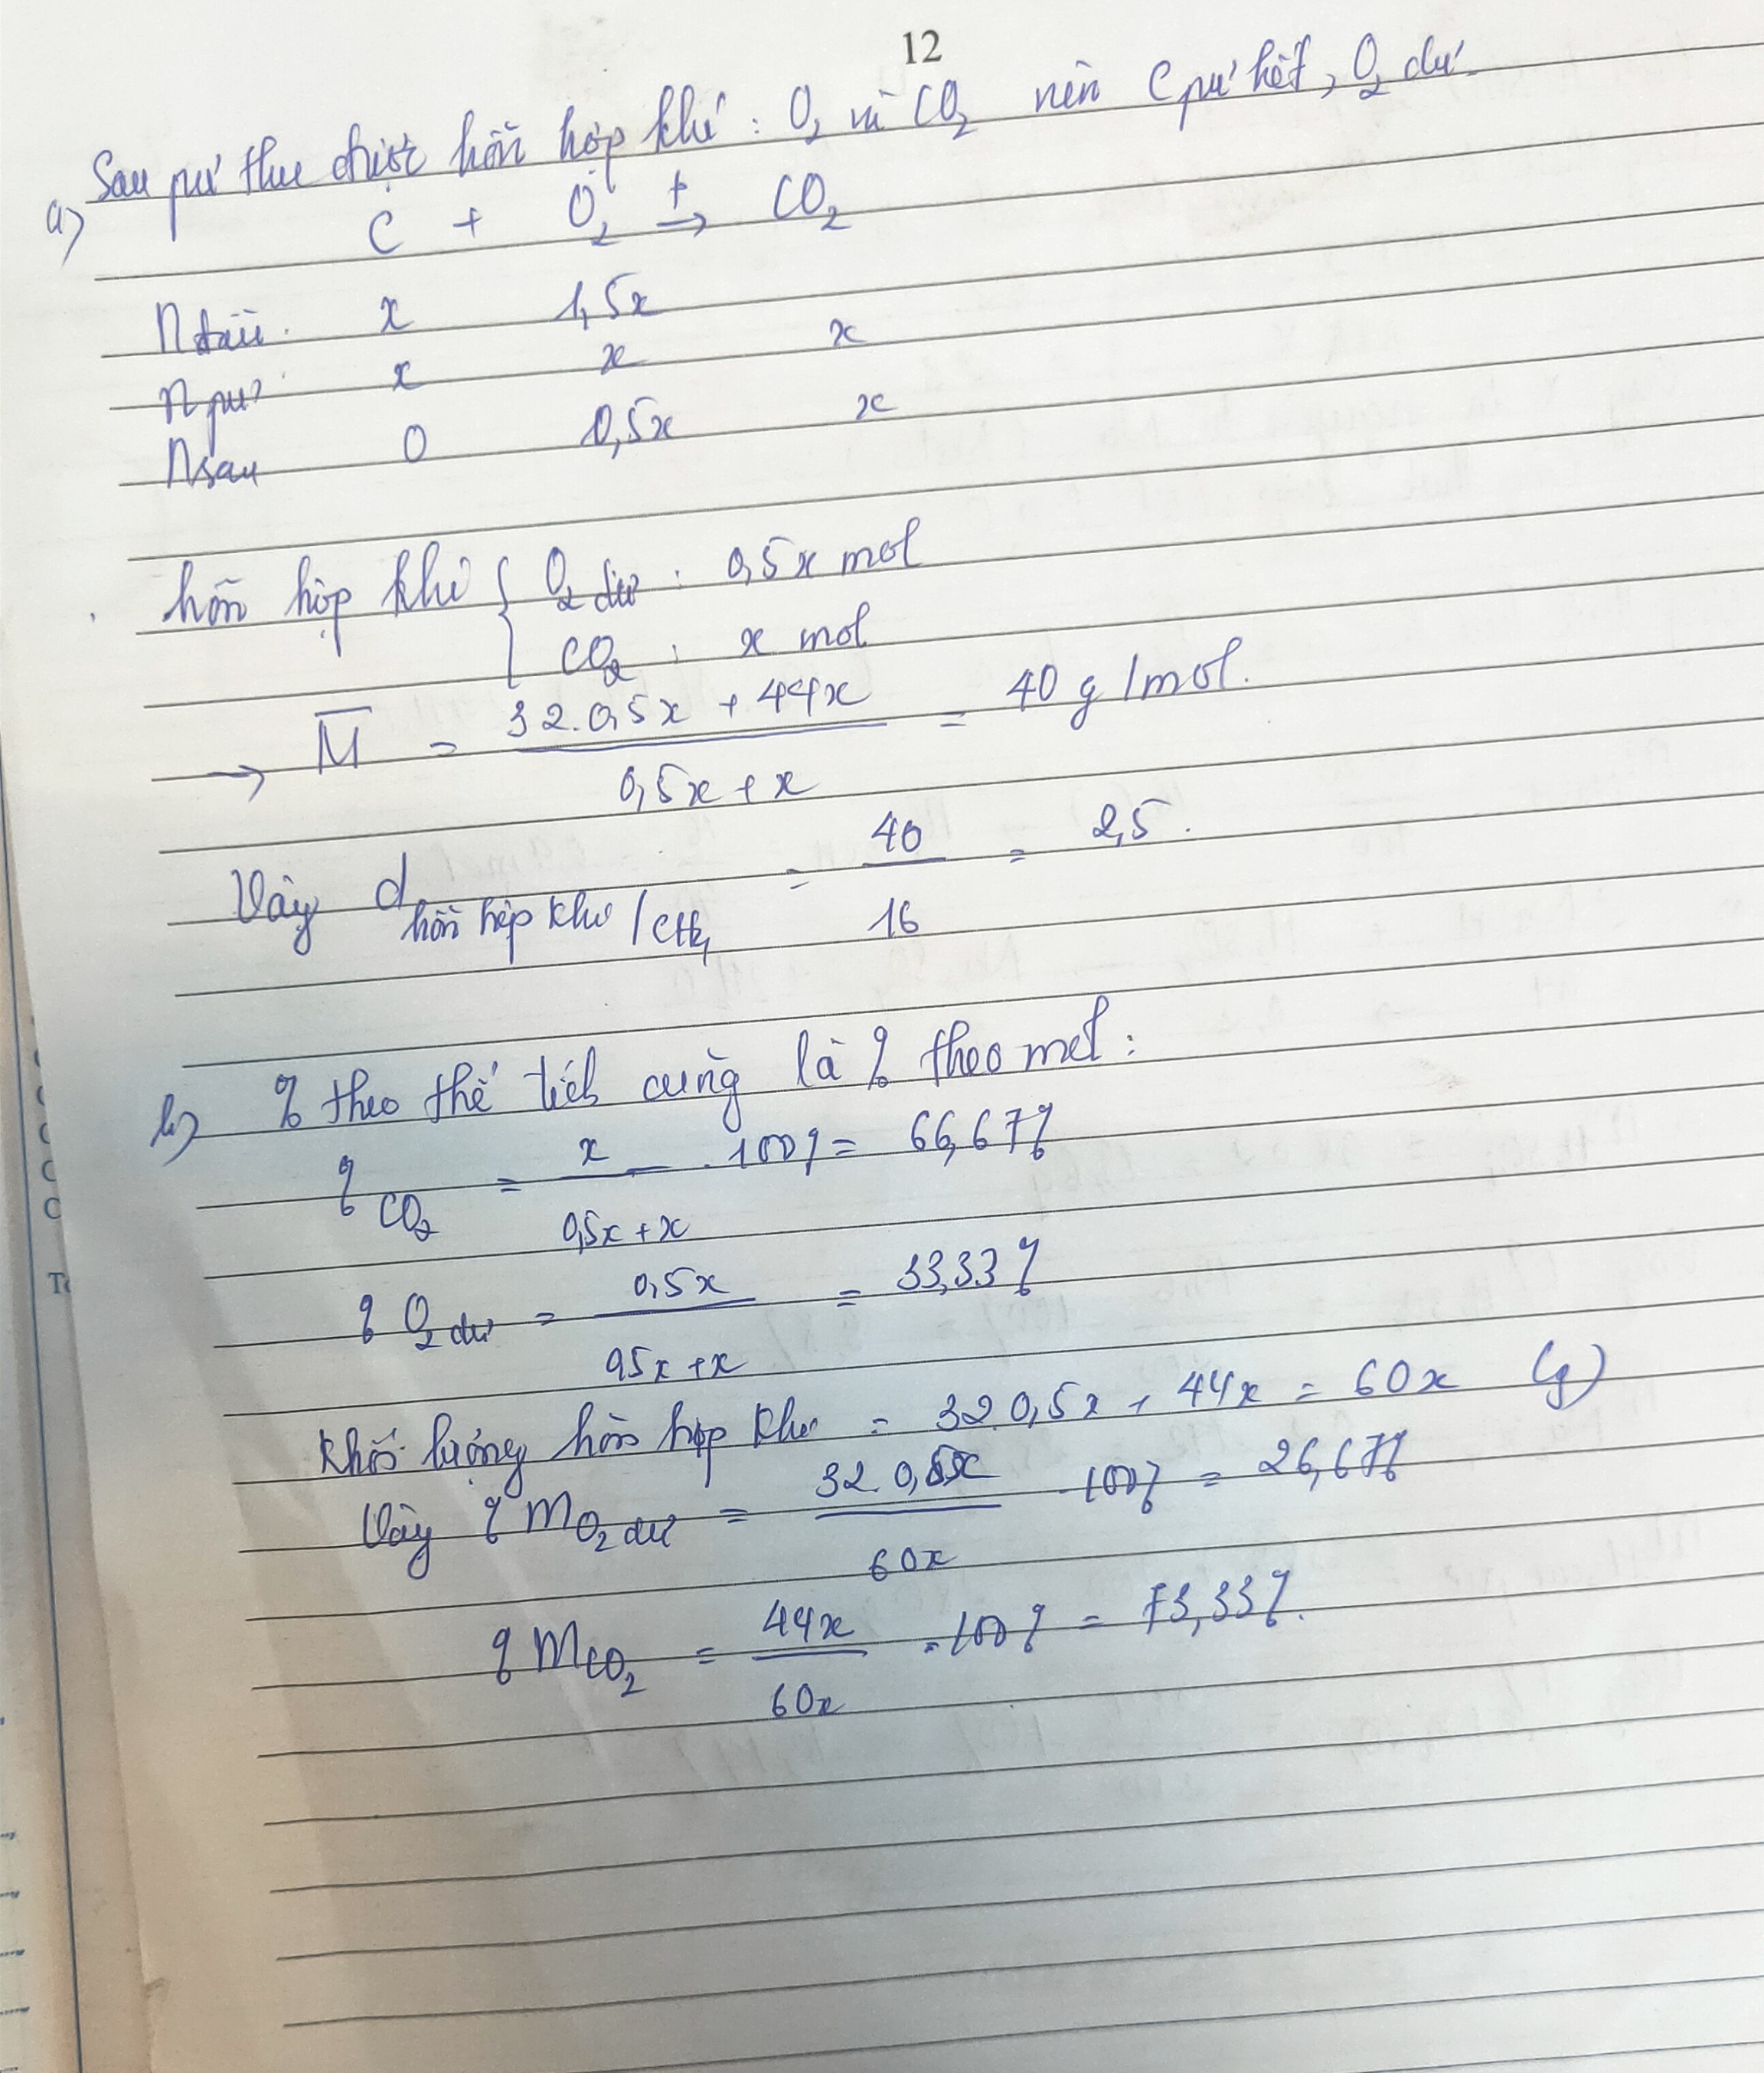 12
Sau pư thu được hỗn hợp khí : O2 và CO2 nên C pư hết, O2 dư
a) C + O2 t→ CO2
n đầu. x 1,5x
n pư: x x x
n sau 0 0,5x x
hỗn hợp khí { O2 dư : 0,5x mol
CO2 : x mol
→ M̅ = (32.0,5x + 44x) / (0,5x + x) = 40 g/mol.
Vậy d hỗn hợp khí/CH4 = 40/16 = 2,5.
b) % theo thể tích cũng là % theo mol :
% CO2 = x / (0,5x + x) . 100% = 66,67%
% O2 dư = 0,5x / (0,5x + x) = 33,33%
Khối lượng hỗn hợp khí = 32.0,5x + 44x = 60x (g)
Vậy % mO2 dư = 32.0,5x / 60x . 100% = 26,67%
% mCO2 = 44x / 60x . 100% = 73,33%.